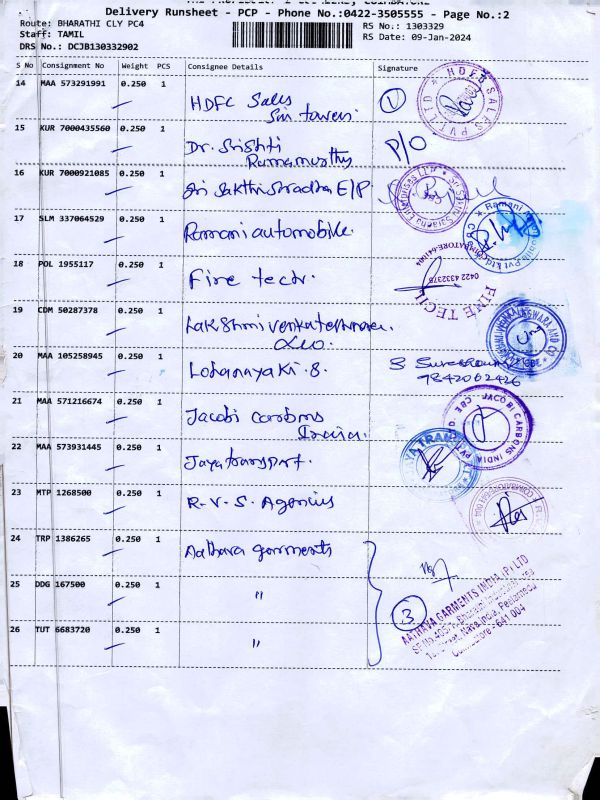 Delivery Runsheet - PCP - Phone No.:0422-3505555 - Page No.:2
Route: BHARATHI CLY PC4
RS No.: 1303329
Staff: TAMIL
RS Date: 09-Jan-2024
DRS No.: DCJB130332902
S No Consignment No Weight PCS Consignee Details Signature
14 MAA 573291991 0.250 1 HDFC Sales
Sri towers
1
HDFC SALES PVT LTD
15 KUR 7000435560 0.250 1 Dr. Srishti
Ramamurthy
P/O
16 KUR 7000921085 0.250 1 Sri Sakthi Sradha E/P
17 SLM 337064529 0.250 1 Ramani automobile.
18 POL 1955117 0.250 1 Fire tech.
FIRE TECH
0422 4332376
19 CDM 50287378 0.250 1 Lakshmi venkateshwara
& co.
20 MAA 105258945 0.250 1 Loganayaki. S.
9842062426
21 MAA 571216674 0.250 1 Jacobi carbons
India.
JACOBI CARBONS INDIA PVT CBE
22 MAA 573931445 0.250 1 Jaya transport.
23 MTP 1268500 0.250 1 R.V.S. Agencies
24 TRP 1386265 0.250 1 Aathava garments
25 DDG 167500 0.250 1 "
3
AATHAVA GARMENTS INDIA (P) LTD
Coimbatore - 641 004
26 TUT 6683720 0.250 1 "